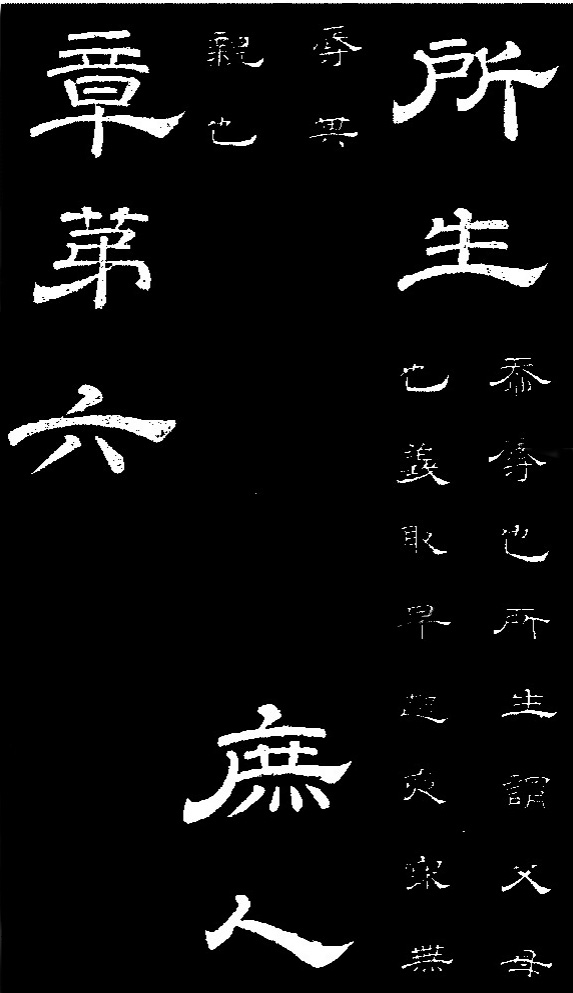 所生
忝辱也所生謂父母
也義取早起夜寐無
辱其
親也
庶人
章第六